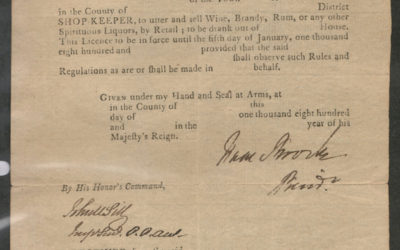 in the County of District
SHOP KEEPER, to utter and sell Wine, Brandy, Rum, or any other
Spirituous Liquors, by Retail ; to be drank out of House.
This Licence to be in force until the fifth day of January, one thousand
eight hundred and provided that the said
shall observe such Rules and
Regulations as are or shall be made in behalf.
GIVEN under my Hand and Seal at Arms, at
in the County of this
day of one thousand eight hundred
and in the year of his
Majesty's Reign.
Isaac Brock
Presid.t
By His Honor's Command,